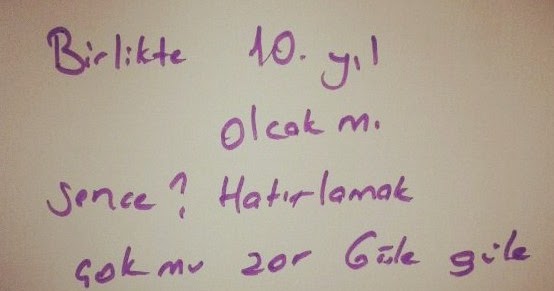 Birlikte 10. yıl
Olcak mı
Sence? Hatırlamak
Çok mu zor Güle güle